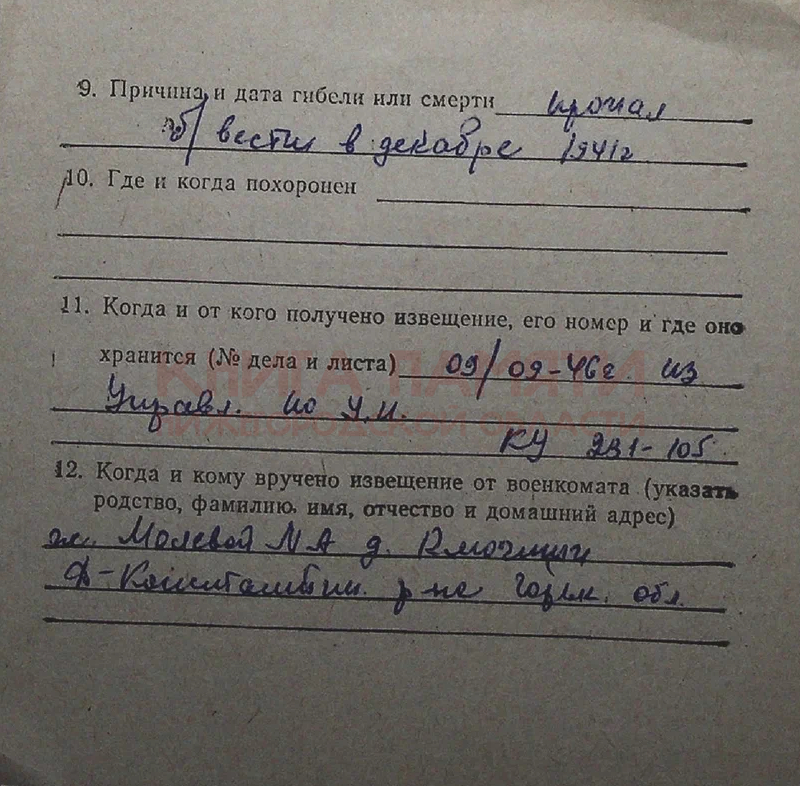 9. Причина и дата гибели или смерти пропал
б/ вести в декабре 1941г
10. Где и когда похоронен
11. Когда и от кого получено извещение, его номер и где оно
хранится (№ дела и листа) 09/09-46г из
КНИГА ПАМЯТИ
Управл. по У.И.
НИЖЕГОРОДСКОЙ ОБЛАСТИ
КУ 231-105
12. Когда и кому вручено извещение от военкомата (указать
родство, фамилию, имя, отчество и домашний адрес)
Молевой М А д.
Д-Константин. р-не Горьк. обл.